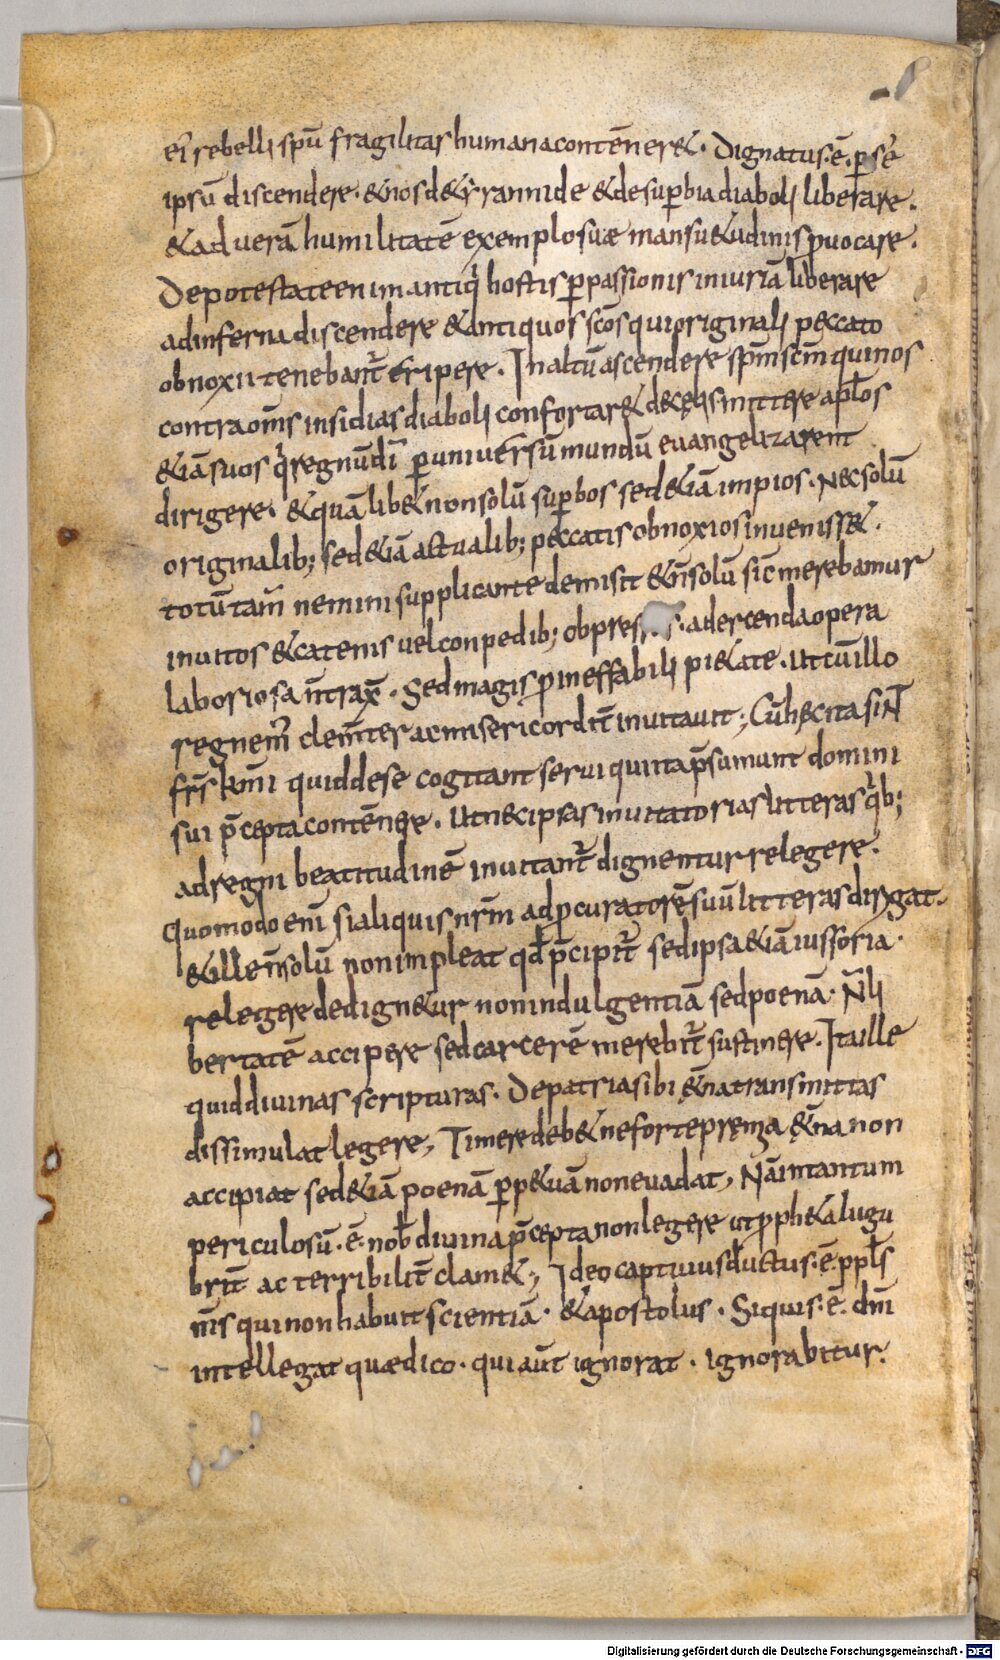 ei rebelli spū fragilitas humana contēneret. Dignatus ē. per se
ipsū discendere. & nos de tyrannide & de superbia diaboli liberare.
& ad verā humilitatē exemplo suæ mansu&udinis provocare.
De potestate enim antiq hostis p passionis iniuriā liberare
ad inferna discendere & antiquos scōs qui originali peccato
obnoxii tenebant̄ eripere. In altū ascendere sp̄m sc̄m qui nos
contra om̄s insidias diaboli confortar& de cęlis mittere apl̄os
&iā suos q regnū dī p universū mundū evangelizarent
dirigere. & quā lib& non solū supbos sed &iā impios. Nec solū
originalib; sed &iā actualib; peccatis obnoxios inveniss&.
totū tam̄ nemini supplicante demisit & n̄ solū sic merebamur
invitos & catenis vel conpedib; obpres s. ad ercenda opera
laboriosa n̄ trax̄. Sed magis p ineffabili pi&ate. Ut cū illo
regnem̄ clem̄ter ac misericordit̄ invitavit; Cū hęc ita sint
frs̄ km̄i quid de se cogitant servi qui ita p̄sumunt domini
sui p̄cepta contēnere. Ut nec ipsas invitatorias litteras qb;
ad regni beatitudinē invitant̄ dignentur relegere.
Quomodo enī si aliquis nr̄m ad pcuratorē suū litteras dirigat.
& ille n̄ solū non impleat qd p̄cipit̄ sed ipsa &iā iussoria.
relegere dedign&ur non indulgentiā sed poenā. N̄ li
bertatē accipere sed carcerē merebit̄ sustinere. Ita ille
qui divinas scripturas. De patria sibi &̄na transmittas
dissimulat legere, Timere deb& ne forte premia &̄na non
accipiat sed &iā poenā pp&uā non evadat, Nā in tantum
periculosū. ē. nob divina p̄cepta non legere ut pph&a lugu
brit̄ ac terribilit̄ clam&; Ideo captivus ductus. ē. ppl̄s
m̄s qui non habuit scientiā. & apostolus. Si quis. ē. dn̄i
intellegat quæ dico. qui aūt ignorat. ignorabitur.
Digitalisierung gefördert durch die Deutsche Forschungsgemeinschaft - DFG